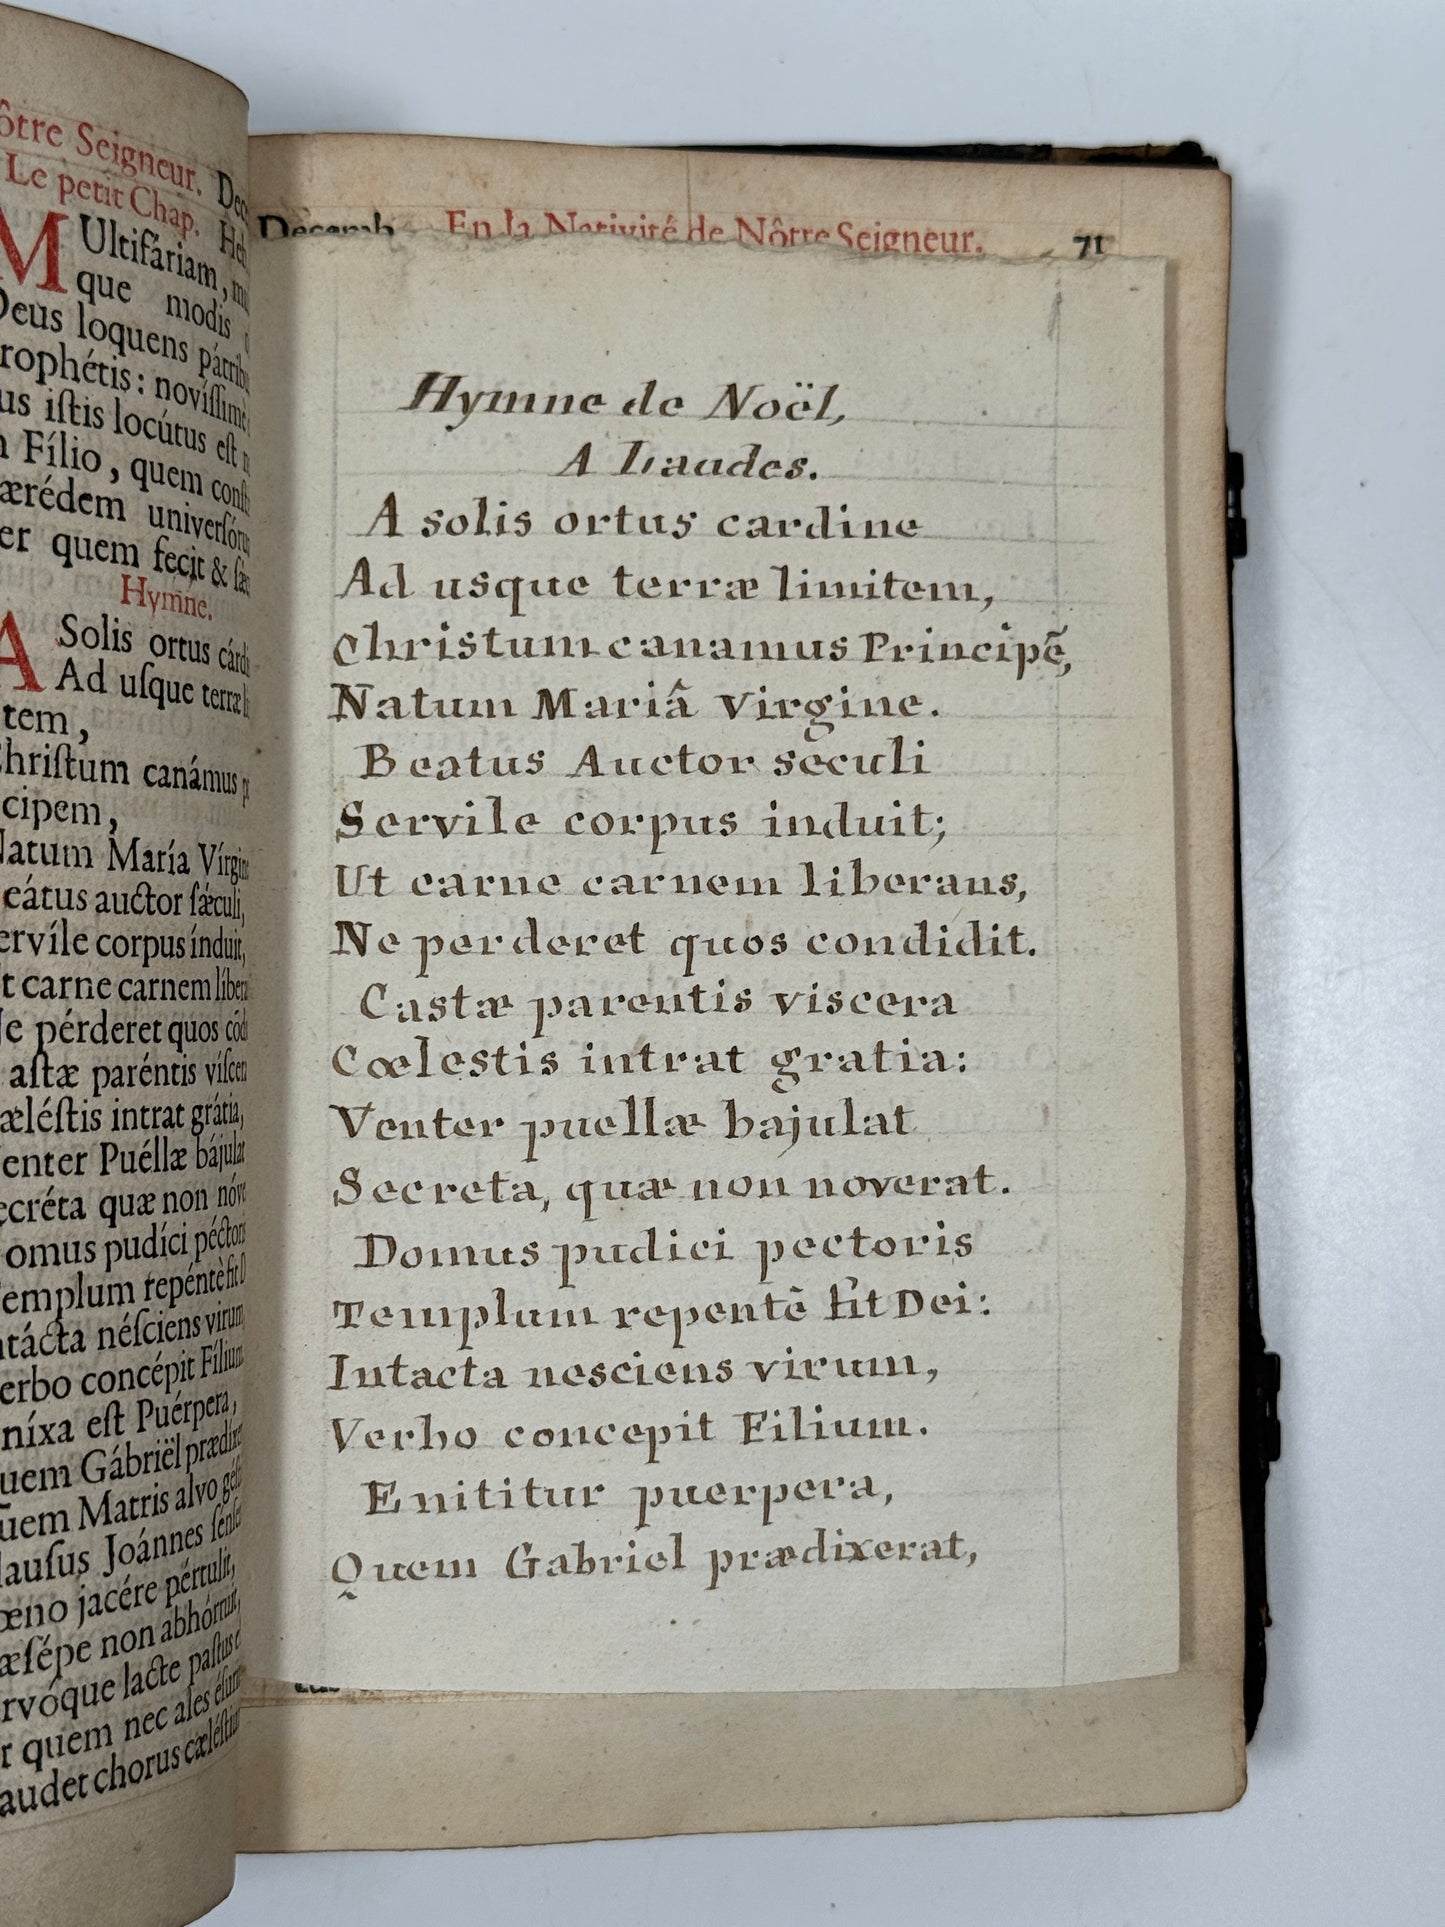 ôtre Seigneur.
Le petit Chap.
MUltifáriam,
que modis
Deus loquens
rophétis: novíſſimè
us iſtis locútus eſt
Fílio, quem
ærédem
er quem fecit &
Hymne.
A Solis ortus
Ad uſque terræ
tem,
hriſtum canámus
cipem,
Natum María
eátus auctor ſǽculi,
ervíle corpus índuit,
t carne carnem
Ne pérderet quos
aſtæ paréntis
æléſtis intrat grátia,
enter Puéllæ
ecréta quæ non
omus pudíci
emplum repéntè fit
ntácta néſciens
erbo concépit
níxa eſt Puérpera,
uem Gábriël
uem Matris alvo
lauſus Joánnes
œno jacére pértulit,
æſépe non abhórruit,
rvóque lacte paſtus
r quem nec ales
audet chorus
Decemb. En la Nativité de Nôtre Seigneur. 71
Hymne de Noël,
A Laudes.
A solis ortus cardine
Ad usque terræ limitem,
Christum canamus Principẽ,
Natum Mariâ virgine.
Beatus Auctor seculi
Servile corpus induit;
Ut carne carnem liberans,
Ne perderet quos condidit.
Castæ parentis viscera
Cœlestis intrat gratia:
Venter puellæ bajulat
Secreta, quæ non noverat.
Domus pudici pectoris
Templum repentè fit Dei:
Intacta nesciens virum,
Verbo concepit Filium.
Enititur puerpera,
Quem Gabriel prædixerat,